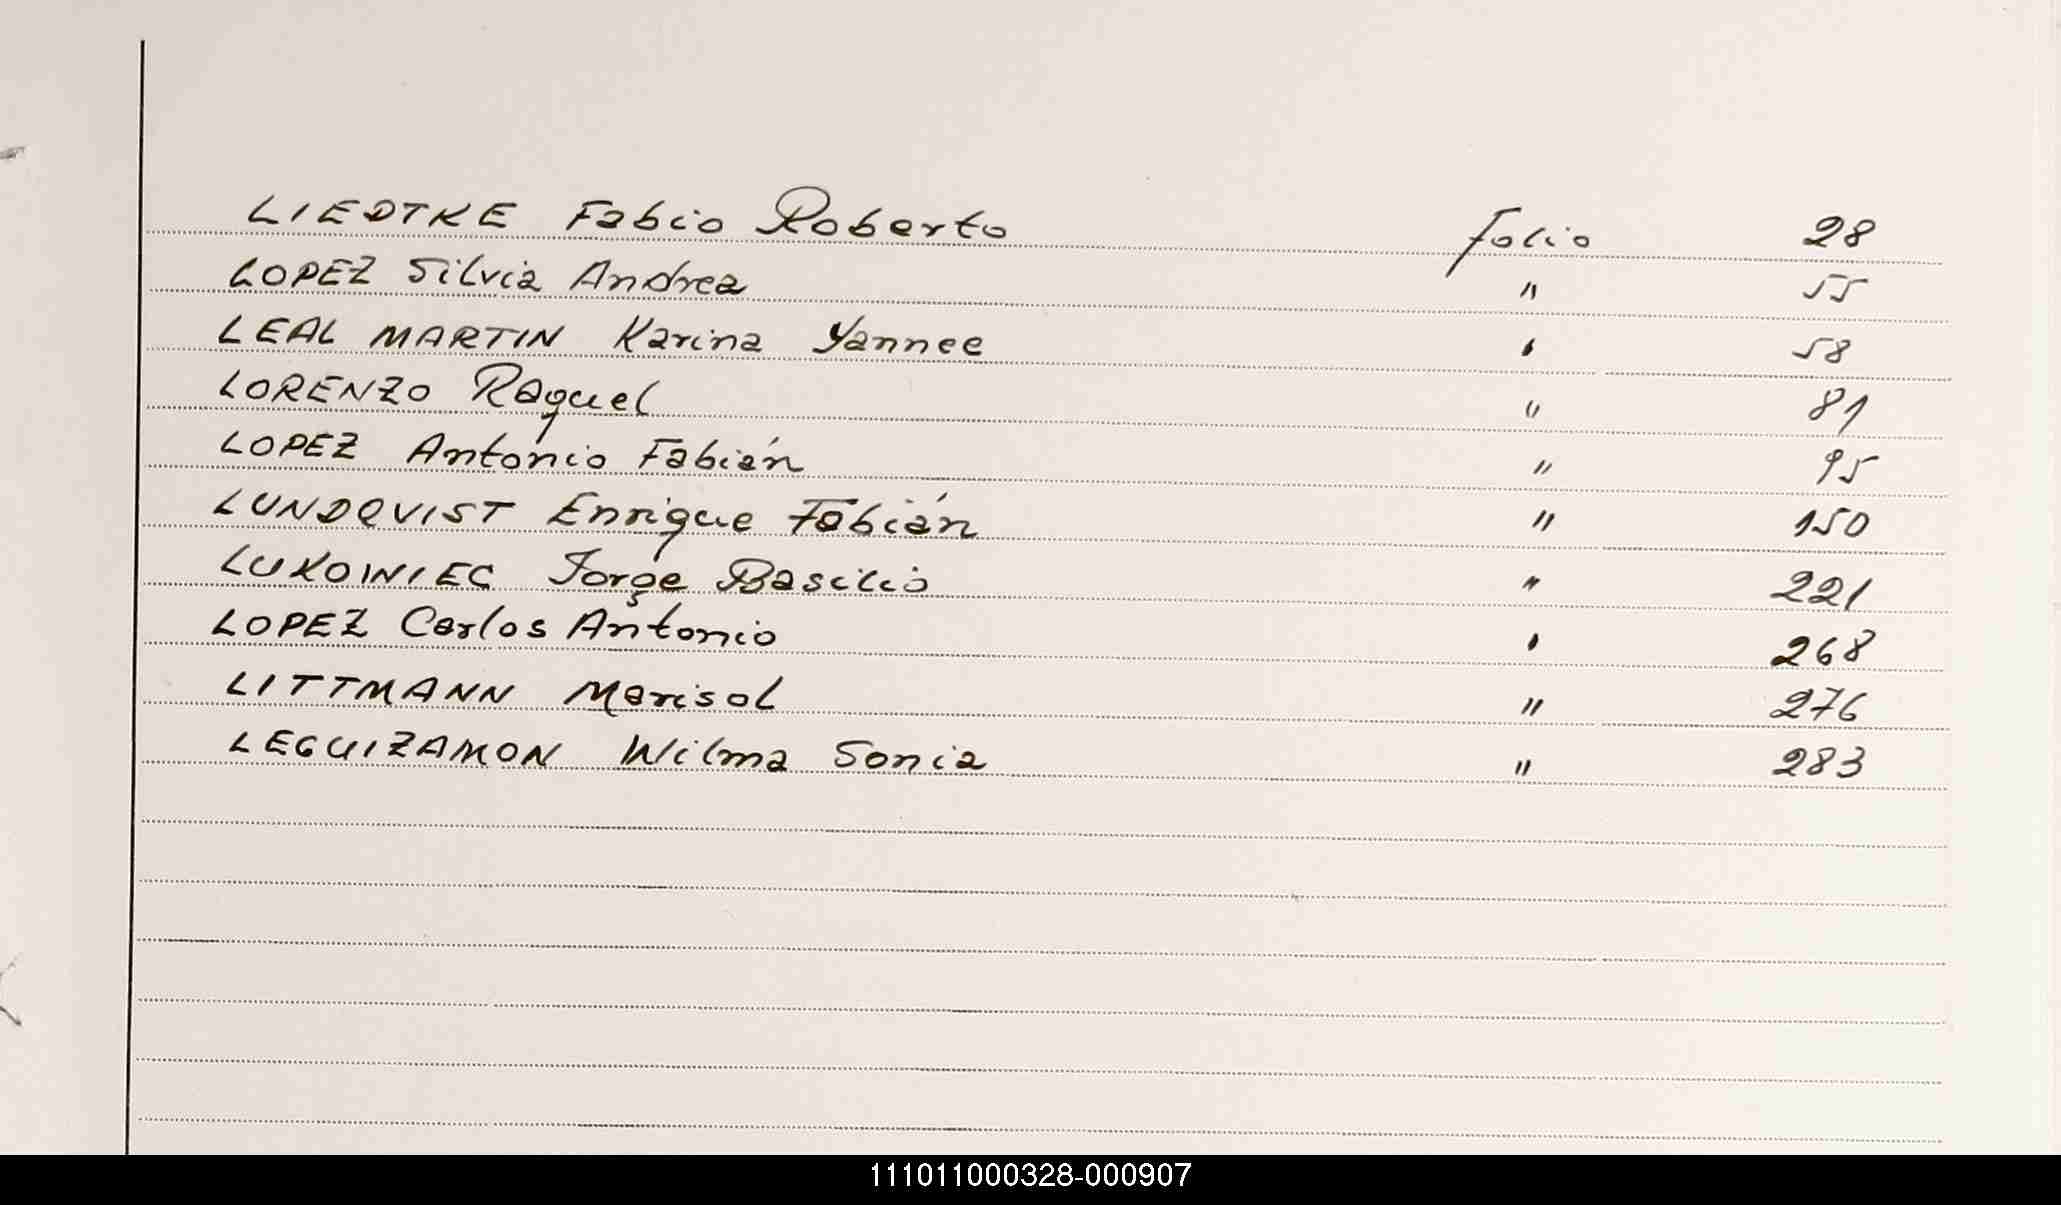 LIEDTKE Fabio Roberto folio 28
LOPEZ Silvia Andrea " 55
LEAL MARTIN Karina Yannee " 58
LORENZO Raquel " 81
LOPEZ Antonio Fabián " 95
LUNDQVIST Enrique Fabián " 150
LUKOWIEC Jorge Basilio " 221
LOPEZ Carlos Antonio " 268
LITTMANN Marisol " 276
LEGUIZAMON Wilma Sonia " 283
111011000328-000907